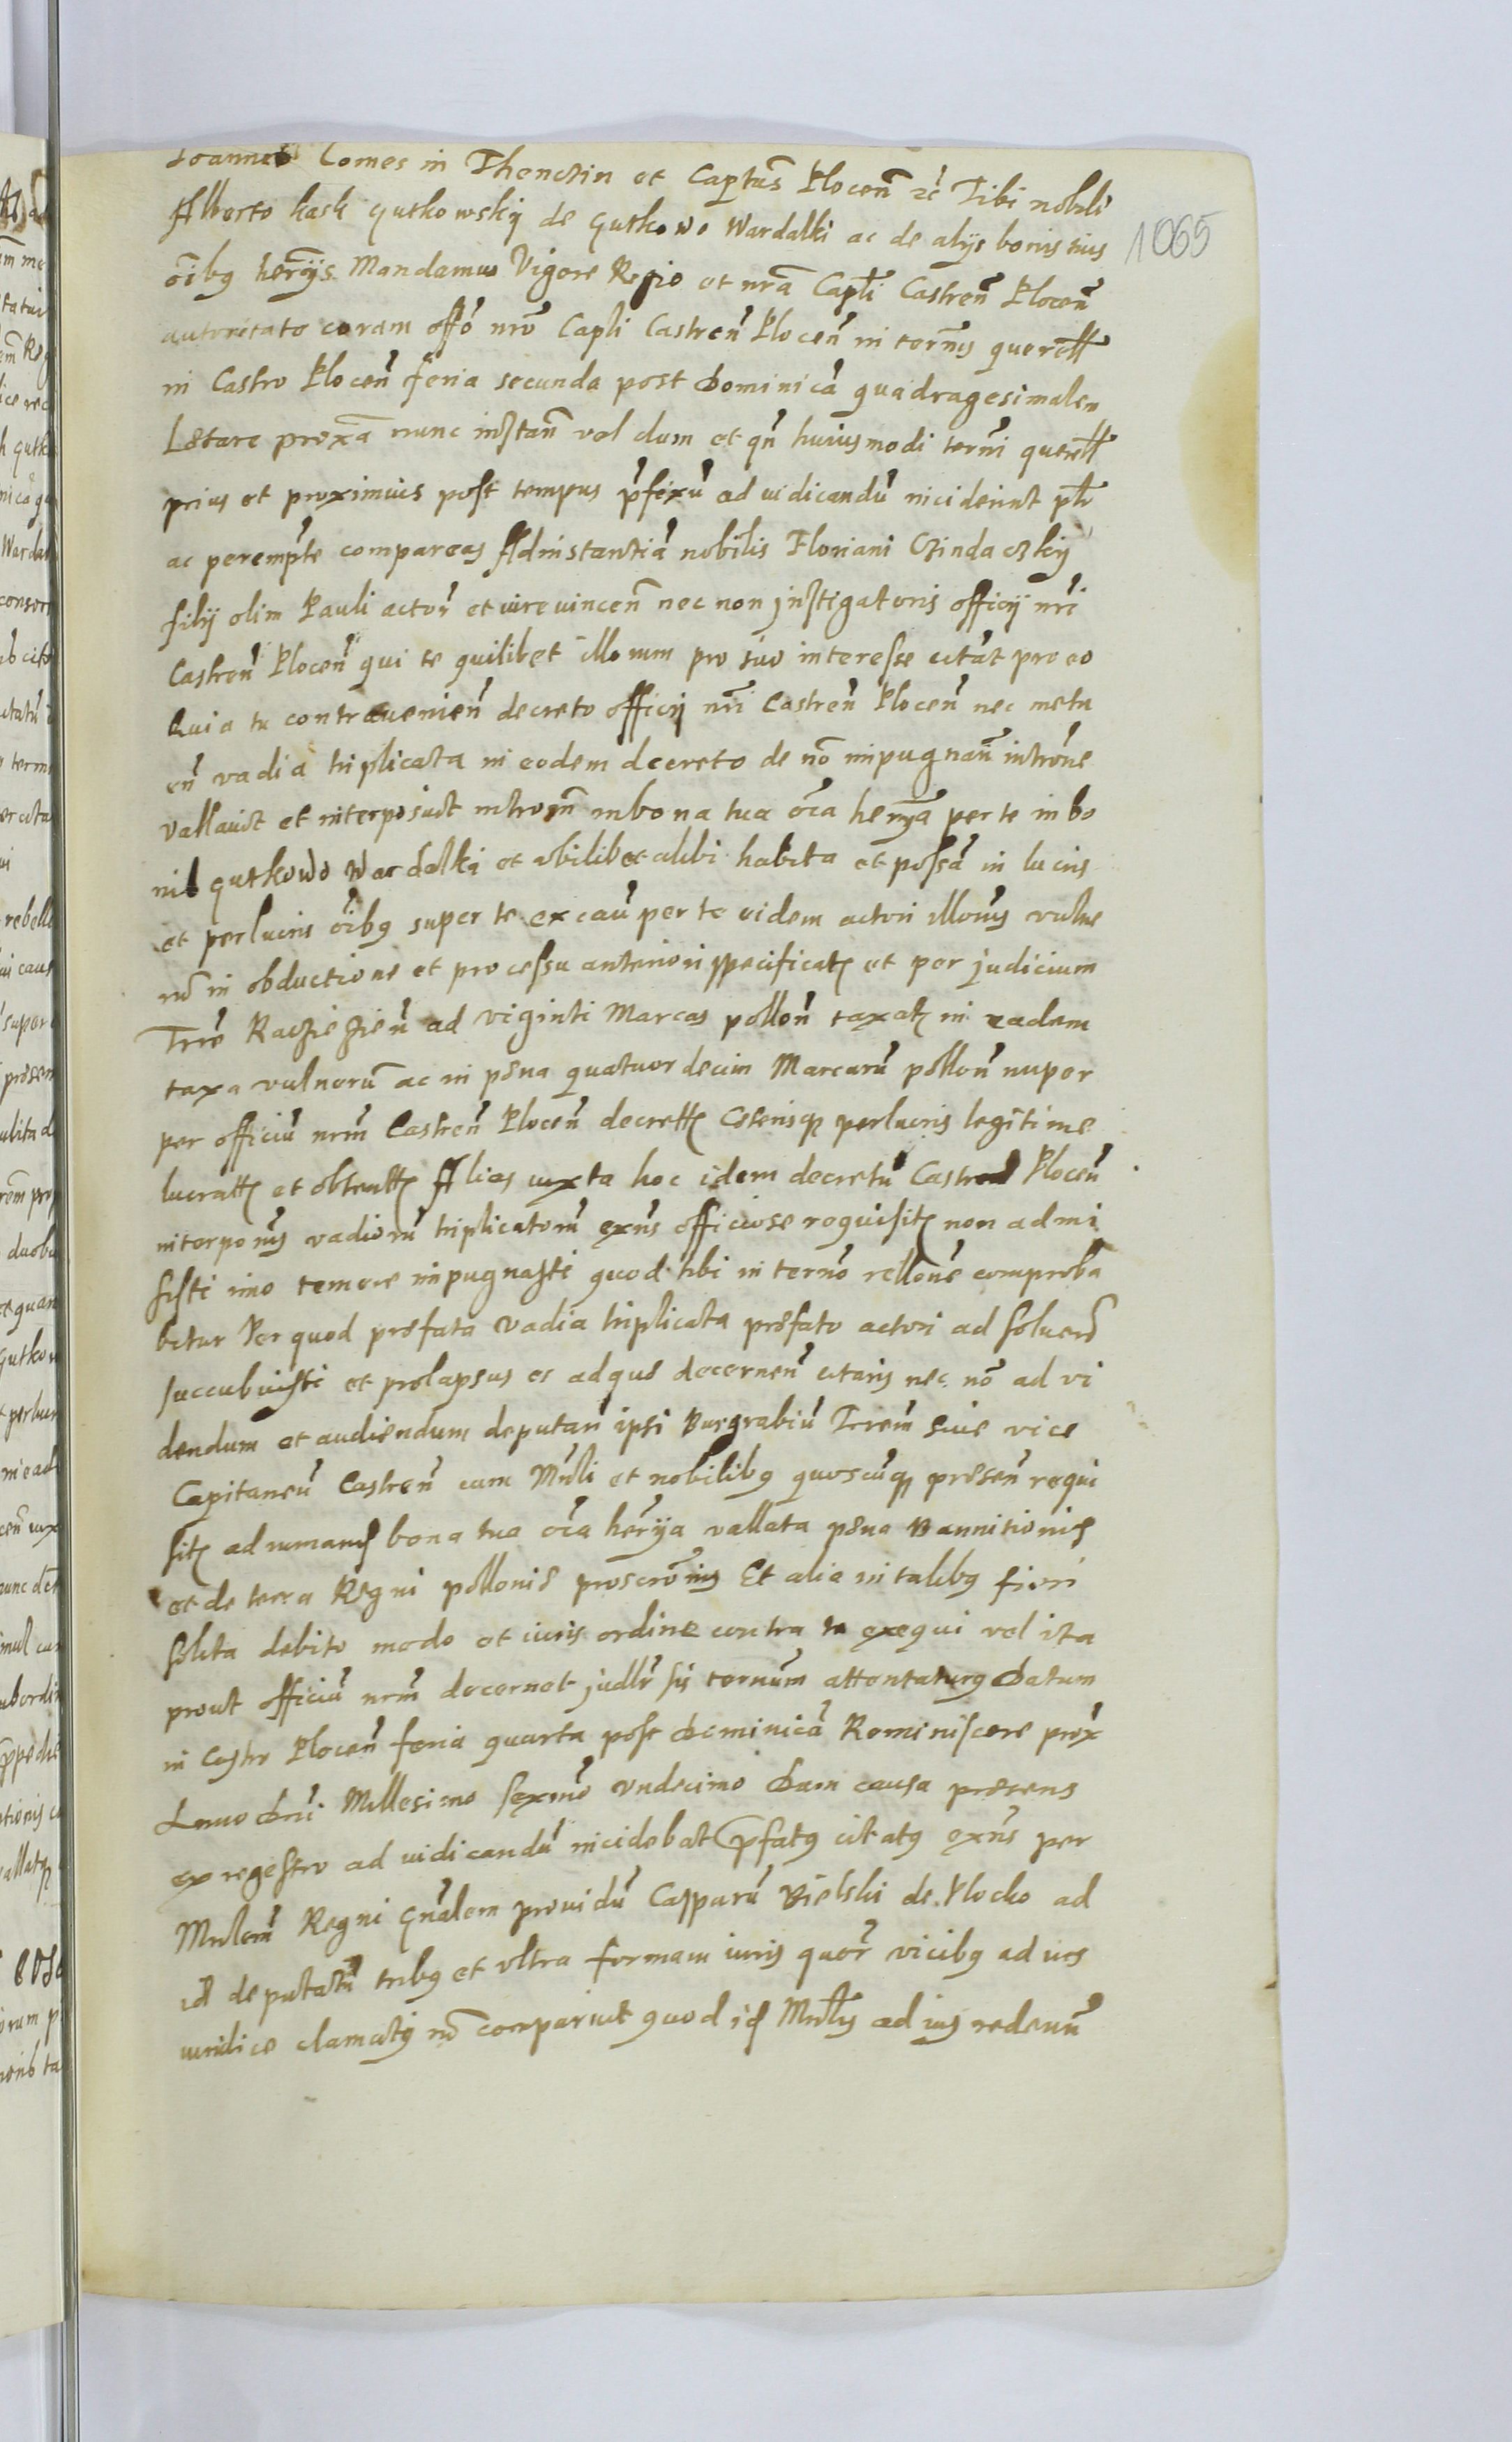 Joannes Comes in Thenczin et Capitūs Plocen̄ zc̄ Tibi nobili
Alberto kask Gutkowskÿ de Gutkowo Wardalki ac de alÿs bonis tuis
oībq herījs Mandamus Vigore Regio et nr̄a Capli Castren̄ Plocen̄
autoritate coram offō nrō Capli Castren̄ Plocen̄ in ternīs querell
in Castro Plocen̄ feria secunda post Dominicā quadragesimalem
Lætare proxā nunc instan̄ vel dum et qn̄ huiusmodi terni querell
prius et proximius post tempus p̄fixū ad iudicandū inciderint plr̄
ac peremp̄te compareas Ad instantiā nobilis Floriani Czindaczkÿ
filÿ olim Pauli actor̄ et iurevincen̄ nec non jnstigatoris officÿ nr̄i
Castren̄ Plocen̄ qui te quilibet illorum pro suo interesse citāt pro eo
Quia tu contravenien̄ decreto officÿ nr̄i Castren̄ Plocen̄ nec metu
en̄ vadia triplicata in eodem decreto de nō impugnan̄ introne
vallavit et interposuit introm̄ in bona tua oīa herīja per te in bo
nis Gutkowo Wardalki et vbilibet alibi habita et possā in lucris
et perlucris oībq super te ex cau per te eidem actori illorūs vulne
rū in obductione et processu anteriori specificat et per judicium
Trre Raczieziēn ad viginti Marcas pollon̄ taxat in eadem
taxa vulnerū ac in pæna quatuordecim Marcarū pollon̄ nuper
per officiū nrm̄ Castren̄ Plocen̄ decrett cæterisq perlucris legitime
lucratt et obtentt Alias iuxta hoc idem decretū Castren Plocen̄
interponīs vadiorū triplicatorū exn̄s officiose requisit non admi
sisti imo temere impugnasti quod tibi in ternō rellōne comproba
bitur Per quod præfata vadia triplicata præfato actori ad solven̄d
succubuisti et prolapsus es ad quæ decernen̄ citaris nec nō ad vi
dendum et audiendum deputari ipsi Burgrabiū Trrem sive vice
Capitaneū Castren̄ cum Mnli et nobilibq quoscūq præsen̄ requi
sit adrumand bona tua oīa herīja vallata pæna Bannitionis
et de terra Regni polloniæ proscrōnis Et alia in talibq fieri
solita debito modo et iuris ordine contra te exequi vel ita
prout officiū nrm̄ decernet judlr̄ sis ternum attentaturq Datum
in Castro Plocen̄ feria quarta post Dominicā Reminiscere prox
Anno Dni Millesimo sexmo Vndecimo Dam causa præsens
ex regestro ad iudicandū incidebat p̄fatq citatq exn̄s per
Mnlem Regni Gn̄alem providū Casparū Bielski de Plocko ad
id deputatū tribq et vltra formam iuris quor̄ vicibq ad ius
iuridice clamatq nō comparuit quod id Mnlis ad ius redeun̄
1065